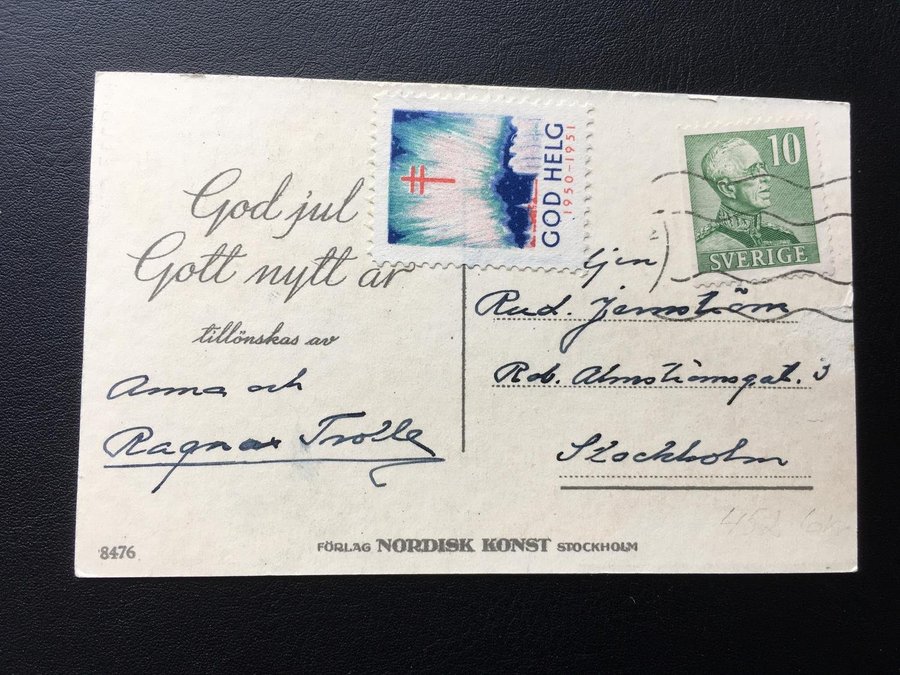 God jul
Gott nytt år
tillönskas av
Anna och
Ragnar Trolle
8476
GOD HELG
1950-1951
10
SVERIGE
Rud. Jernström
Rob. Almströmsgat. 3
Stockholm
FÖRLAG NORDISK KONST STOCKHOLM